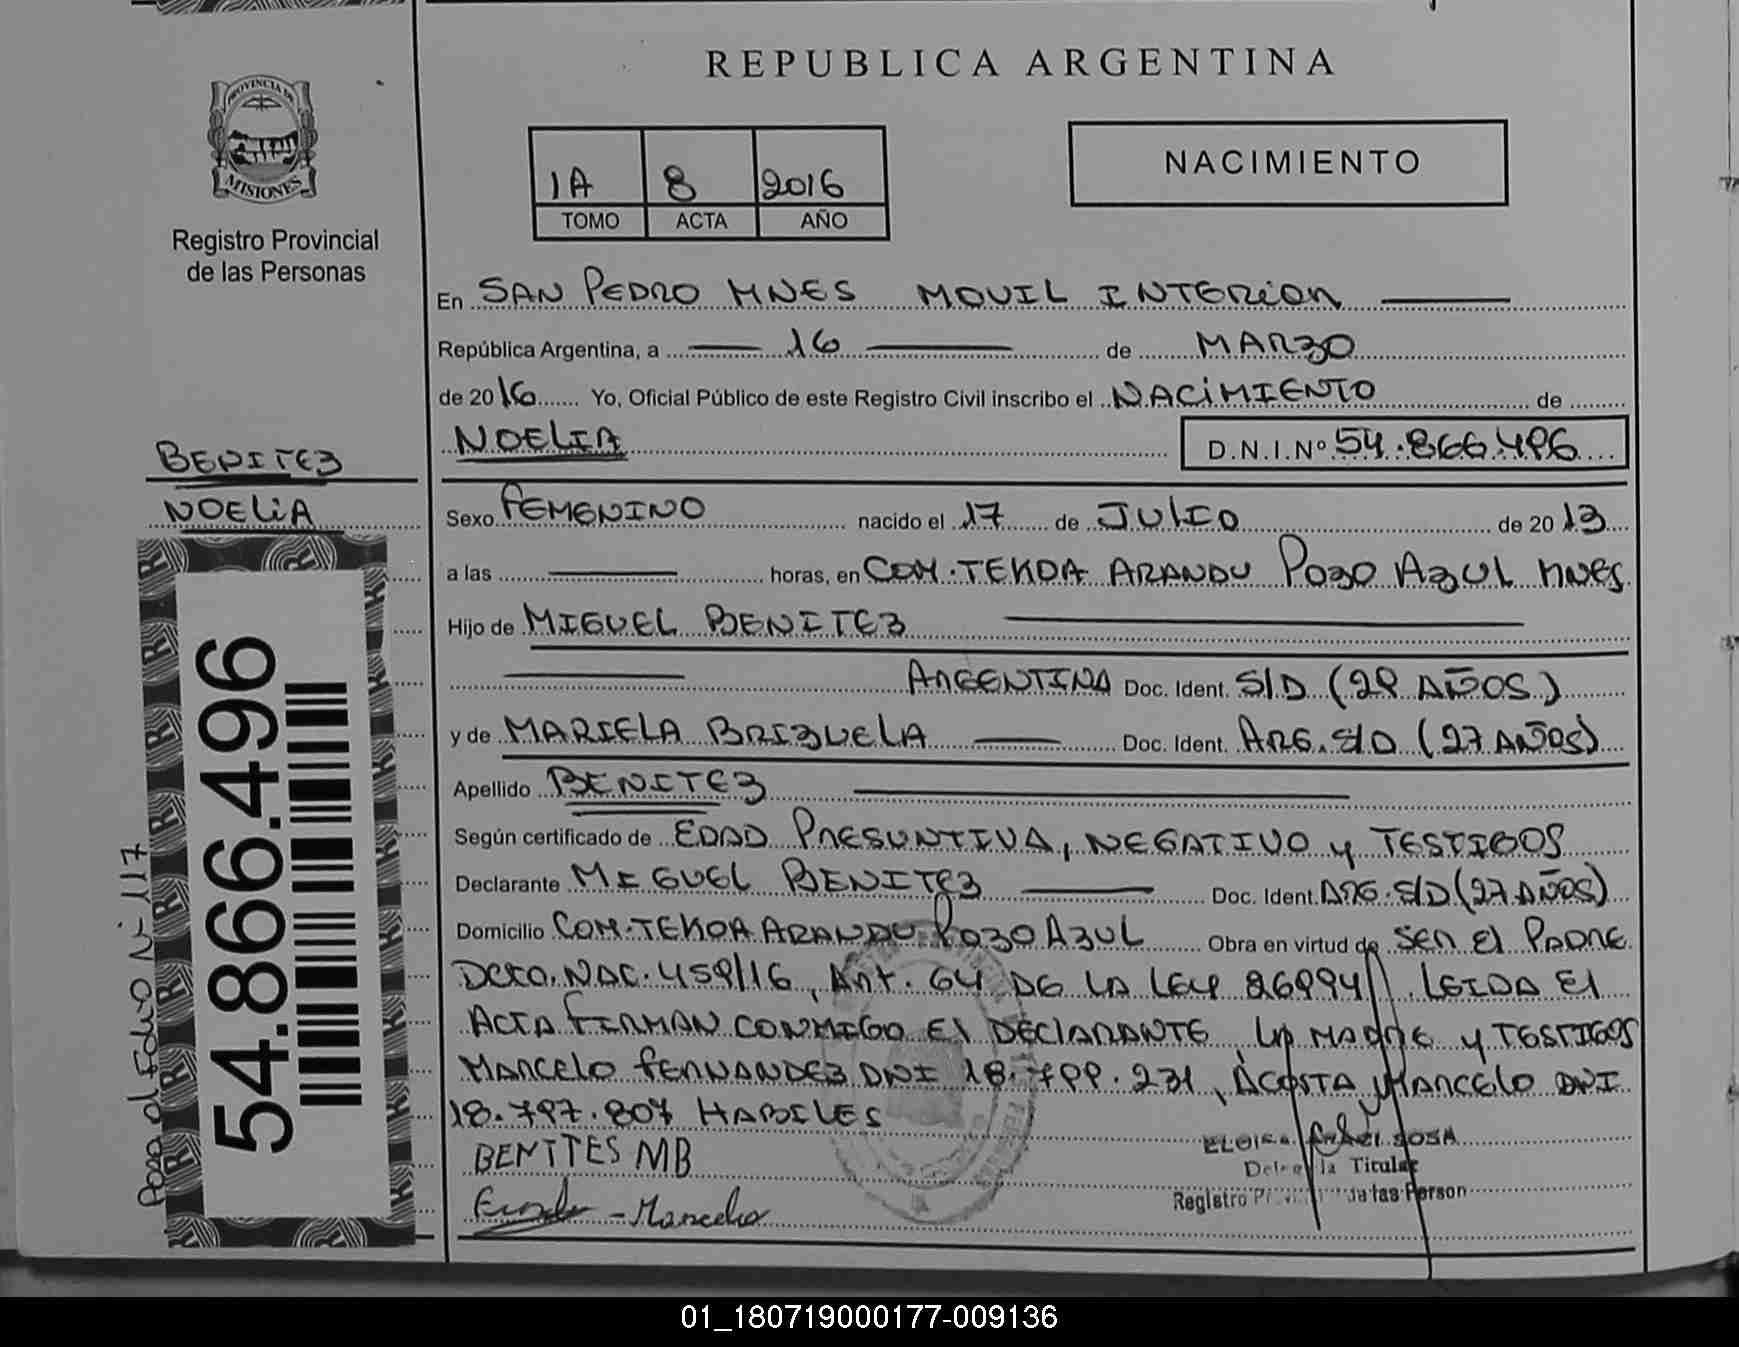 REPUBLICA ARGENTINA
PROVINCIA DE
MISIONES
Registro Provincial
de las Personas
1A 8 2016
TOMO ACTA AÑO
NACIMIENTO
En SAN PEDRO MNES MOVIL INTERIOR
República Argentina, a 16 de MARZO
de 2016 Yo, Oficial Público de este Registro Civil inscribo el NACIMIENTO de
NOELIA D.N.I.Nº 54.866.496
BENITEZ
NOELIA
Sexo FEMENINO nacido el 17 de JULIO de 2013
a las horas, en COM. TEKOA ARANDU POZO AZUL MNES
Hijo de MIGUEL BENITEZ
ARGENTINA Doc. Ident. S/D (29 AÑOS)
y de MARIELA BRIZUELA Doc. Ident. ARG. S/D (27 AÑOS)
Apellido BENITEZ
Según certificado de EDAD PRESUNTIVA, NEGATIVO y TESTIGOS
Declarante MIGUEL BENITEZ Doc. Ident. ARG. S/D (27 AÑOS)
Domicilio COM. TEKOA ARANDU POZO AZUL Obra en virtud de SER El PADRE
DCTO. NAC. 459/16, ART. 64 DE LA LEY 26994 LEIDA El
ACTA FIRMAN CONMIGO El DECLARANTE, LA MADRE y TESTIGOS
MARCELO FERNANDEZ DNI 18.799.231, ACOSTA MARCELO DNI
18.797.807 HABILES
BENITES MB
Marcelo
ELOISA SOSA
Titular
Registro de las Person
54.866.496
Paso al Folio Nº 117
01_180719000177-009136